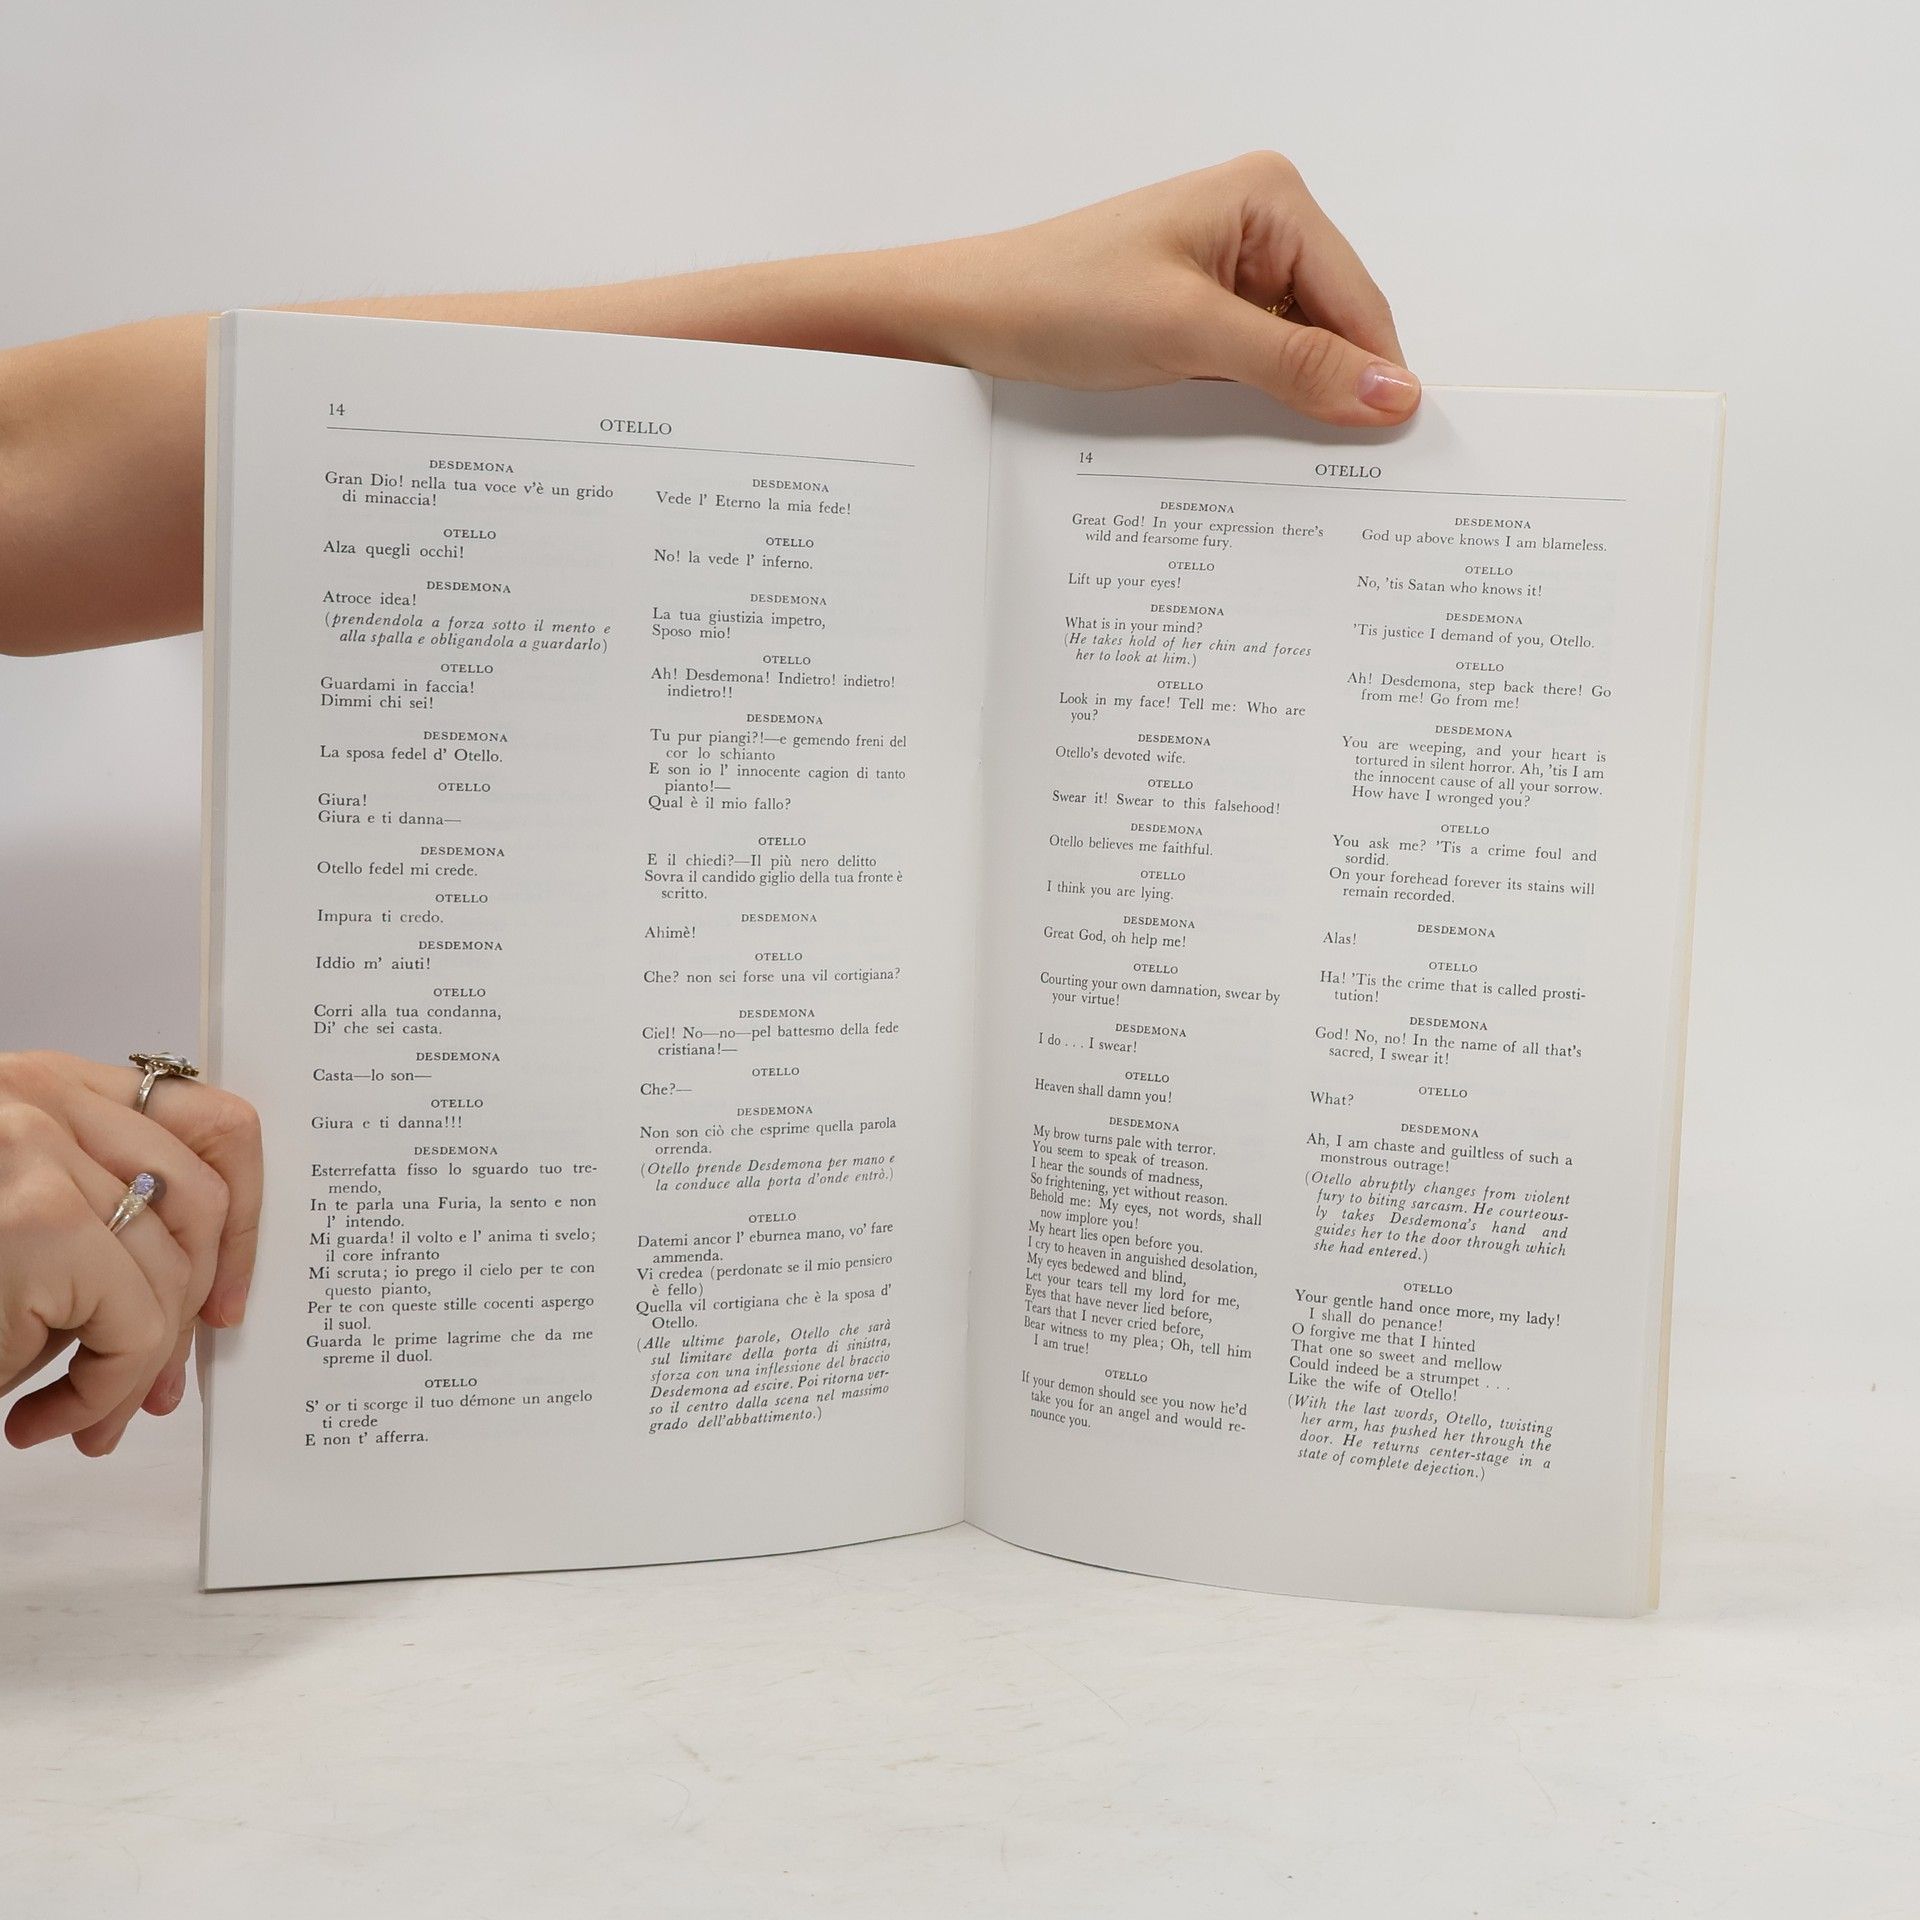 14
OTELLO
DESDEMONA
Gran Dio! nella tua voce v'è un grido
di minaccia!
OTELLO
Alza quegli occhi!
DESDEMONA
Atroce idea!
(prendendola a forza sotto il mento e
alla spalla e obligandola a guardarlo)
OTELLO
Guardami in faccia!
Dimmi chi sei!
DESDEMONA
La sposa fedel d' Otello.
OTELLO
Giura!
Giura e ti danna—
DESDEMONA
Otello fedel mi crede.
OTELLO
Impura ti credo.
DESDEMONA
Iddio m' aiuti!
OTELLO
Corri alla tua condanna,
Di' che sei casta.
DESDEMONA
Casta—lo son—
OTELLO
Giura e ti danna!!!
DESDEMONA
Esterrefatta fisso lo sguardo tuo tre-
mendo,
In te parla una Furia, la sento e non
l' intendo.
Mi guarda! il volto e l' anima ti svelo;
il core infranto
Mi scruta; io prego il cielo per te con
questo pianto,
Per te con queste stille cocenti aspergo
il suol.
Guarda le prime lagrime che da me
spreme il duol.
OTELLO
S' or ti scorge il tuo démone un angelo
ti crede
E non t' afferra.
DESDEMONA
Vede l' Eterno la mia fede!
OTELLO
No! la vede l' inferno.
DESDEMONA
La tua giustizia impetro,
Sposo mio!
OTELLO
Ah! Desdemona! Indietro! indietro!
indietro!!
DESDEMONA
Tu pur piangi?!—e gemendo freni del
cor lo schianto
E son io l' innocente cagion di tanto
pianto!—
Qual è il mio fallo?
OTELLO
E il chiedi?—Il più nero delitto
Sovra il candido giglio della tua fronte è
scritto.
DESDEMONA
Ahimè!
OTELLO
Che? non sei forse una vil cortigiana?
DESDEMONA
Ciel! No—no—pel battesmo della fede
cristiana!—
OTELLO
Che?—
DESDEMONA
Non son ciò che esprime quella parola
orrenda.
(Otello prende Desdemona per mano e
la conduce alla porta d'onde entrò.)
OTELLO
Datemi ancor l' eburnea mano, vo' fare
ammenda.
Vi credea (perdonate se il mio pensiero
è fello)
Quella vil cortigiana che è la sposa d'
Otello.
(Alle ultime parole, Otello che sarà
sul limitare della porta di sinistra,
sforza con una inflessione del braccio
Desdemona ad escire. Poi ritorna ver-
so il centro dalla scena nel massimo
grado dell'abbattimento.)
14
OTELLO
DESDEMONA
Great God! In your expression there's
wild and fearsome fury.
OTELLO
Lift up your eyes!
DESDEMONA
What is in your mind?
(He takes hold of her chin and forces
her to look at him.)
OTELLO
Look in my face! Tell me: Who are
you?
DESDEMONA
Otello's devoted wife.
OTELLO
Swear it! Swear to this falsehood!
DESDEMONA
Otello believes me faithful.
OTELLO
I think you are lying.
DESDEMONA
Great God, oh help me!
OTELLO
Courting your own damnation, swear by
your virtue!
DESDEMONA
I do . . . I swear!
OTELLO
Heaven shall damn you!
DESDEMONA
My brow turns pale with terror.
You seem to speak of treason.
I hear the sounds of madness,
So frightening, yet without reason.
Behold me: My eyes, not words, shall
now implore you!
My heart lies open before you.
I cry to heaven in anguished desolation,
My eyes bedewed and blind,
Let your tears tell my lord for me,
Eyes that have never lied before,
Tears that I never cried before,
Bear witness to my plea; Oh, tell him
I am true!
OTELLO
If your demon should see you now he'd
take you for an angel and would re-
nounce you.
DESDEMONA
God up above knows I am blameless.
OTELLO
No, 'tis Satan who knows it!
DESDEMONA
'Tis justice I demand of you, Otello.
OTELLO
Ah! Desdemona, step back there! Go
from me! Go from me!
DESDEMONA
You are weeping, and your heart is
tortured in silent horror. Ah, 'tis I am
the innocent cause of all your sorrow.
How have I wronged you?
OTELLO
You ask me? 'Tis a crime foul and
sordid.
On your forehead forever its stains will
remain recorded.
DESDEMONA
Alas!
OTELLO
Ha! 'Tis the crime that is called prosti-
tution!
DESDEMONA
God! No, no! In the name of all that's
sacred, I swear it!
OTELLO
What?
DESDEMONA
Ah, I am chaste and guiltless of such a
monstrous outrage!
(Otello abruptly changes from violent
fury to biting sarcasm. He courteous-
ly takes Desdemona's hand and
guides her to the door through which
she had entered.)
OTELLO
Your gentle hand once more, my lady!
I shall do penance!
O forgive me that I hinted
That one so sweet and mellow
Could indeed be a strumpet . . .
Like the wife of Otello!
(With the last words, Otello, twisting
her arm, has pushed her through the
door. He returns center-stage in a
state of complete dejection.)